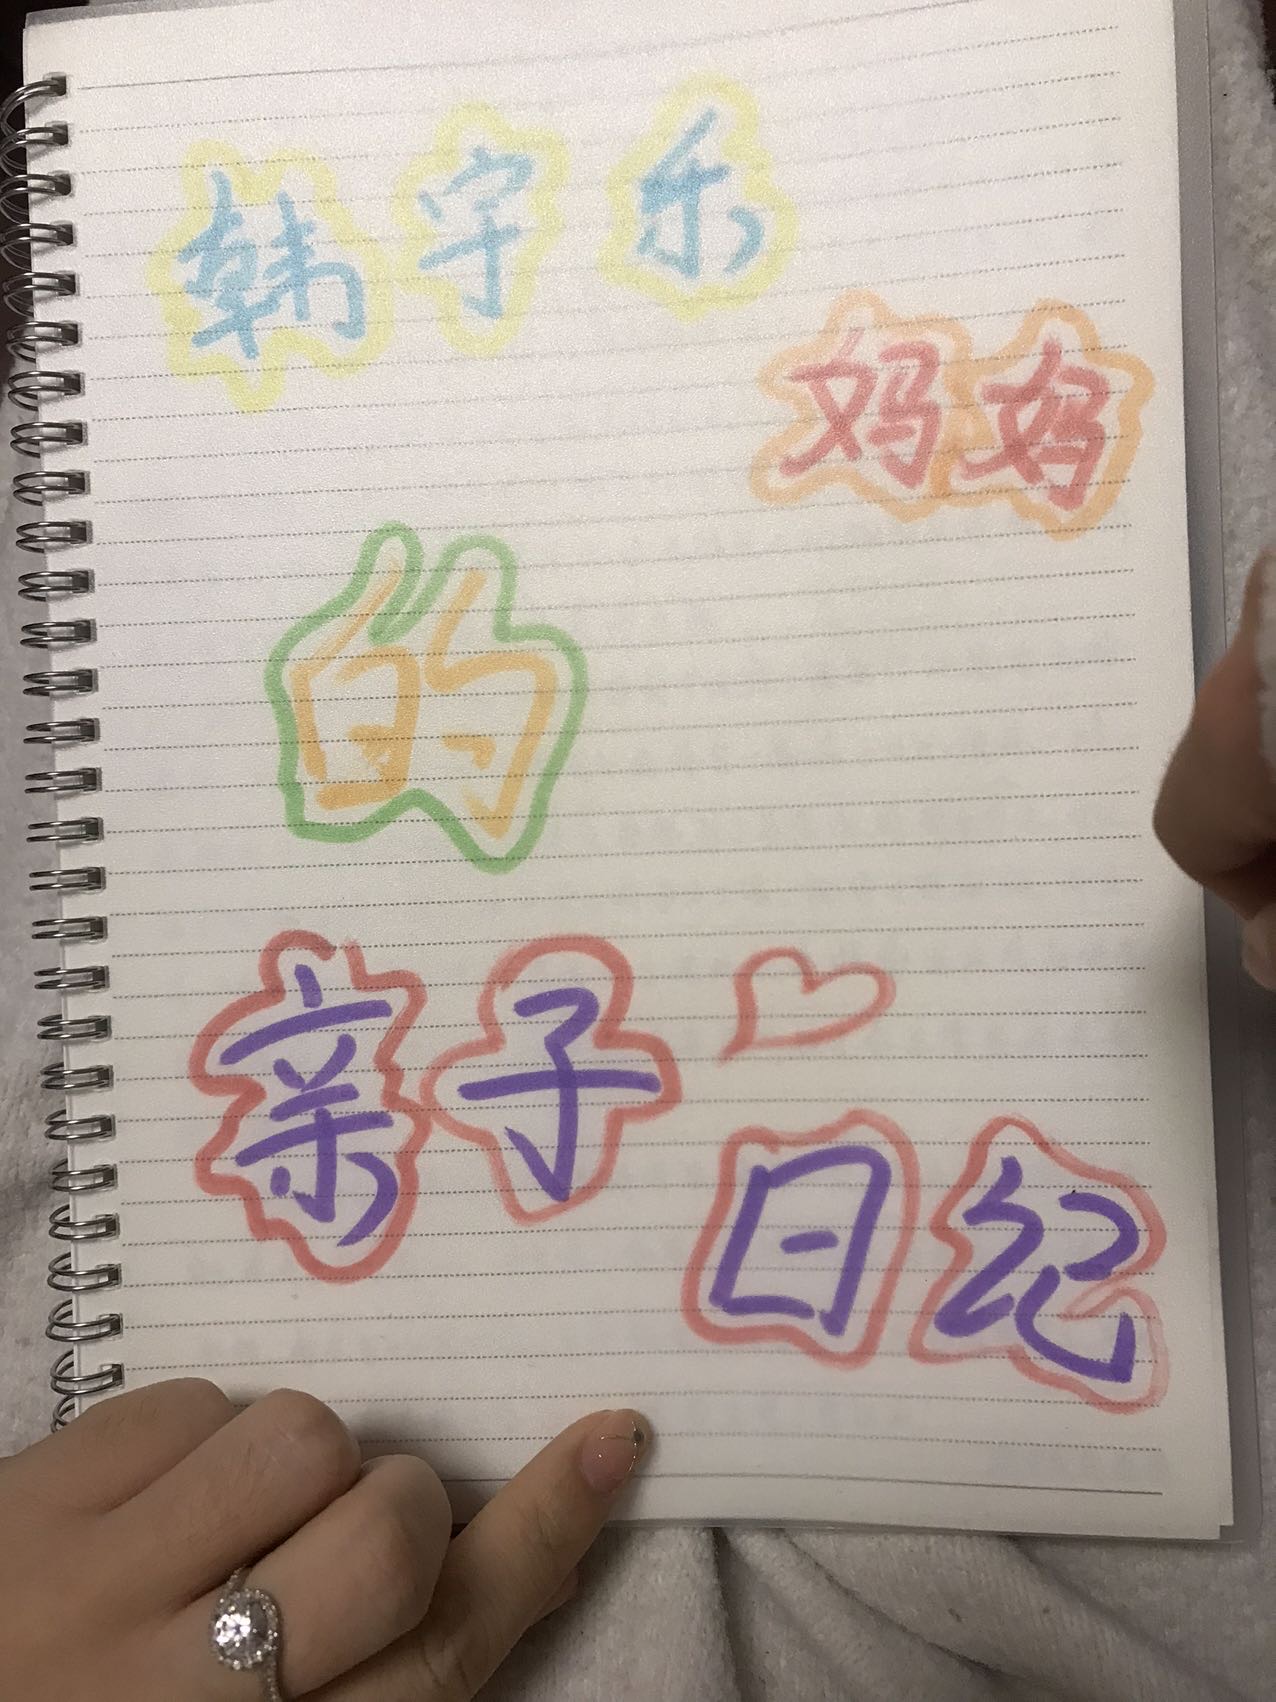 韩宇乐
妈妈
的
亲子
日纪